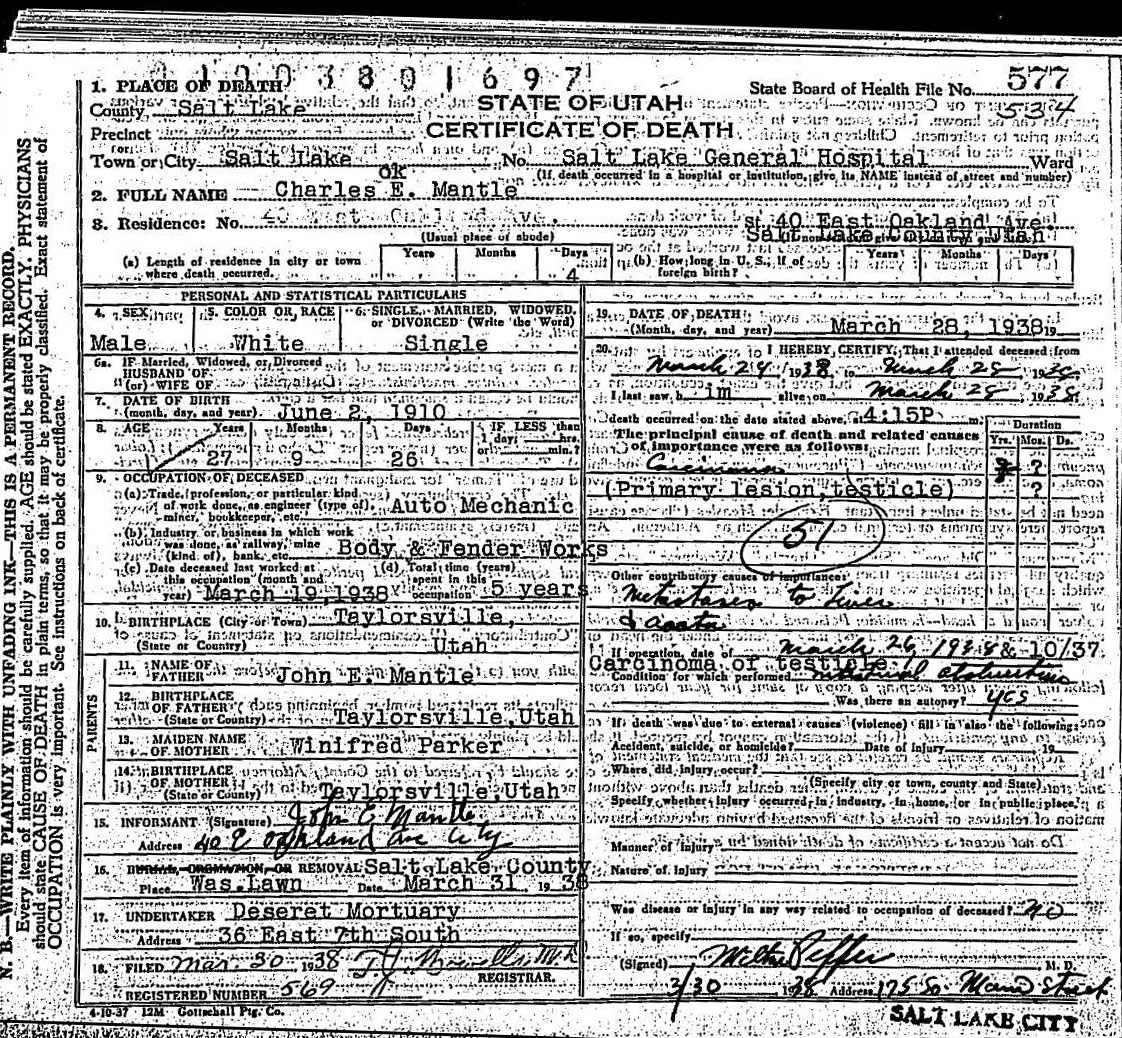 N. B.—WRITE PLAINLY WITH UNFADING INK—THIS IS A PERMANENT RECORD.
Every item of information should be carefully supplied. AGE should be stated EXACTLY. PHYSICIANS
should state CAUSE OF DEATH in plain terms, so that it may be properly classified. Exact statement of
OCCUPATION is very important. See instructions on back of certificate.
1. PLACE OF DEATH
3 8 0 1 6 9 7
State Board of Health File No. 577
534
County Salt Lake
STATE OF UTAH
Precinct
CERTIFICATE OF DEATH
Town or City Salt Lake No. Salt Lake General Hospital Ward
or
(If death occurred in a hospital or institution, give its NAME instead of street and number)
2. FULL NAME Charles E. Mantle
3. Residence: No. 40 East Oakland Ave. St. 40 East Oakland Ave.
Salt Lake County Utah
(Usual place of abode)
(a) Length of residence in city or town where death occurred. Years Months Days 4
(b) How long in U. S., if of foreign birth? Years Months Days
PERSONAL AND STATISTICAL PARTICULARS
4. SEX Male
5. COLOR OR RACE White
6. SINGLE, MARRIED, WIDOWED, or DIVORCED (Write the Word) Single
6a. If Married, Widowed, or Divorced
HUSBAND OF
(or) WIFE OF
7. DATE OF BIRTH
(month, day, and year) June 2, 1910
8. AGE Years Months Days IF LESS than
1 day, hrs.
or min.?
27 9 26
9. OCCUPATION OF DECEASED
(a) Trade, profession, or particular kind
of work done, as engineer (type of), Auto Mechanic
miner, bookkeeper, etc.
(b) Industry or business in which work
was done, as railway, mine
(kind of), bank, etc. Body & Fender Works
(c) Date deceased last worked at
this occupation (month and
year) March 19, 1938
(d) Total time (years)
spent in this
occupation 5 years
10. BIRTHPLACE (City or Town) Taylorsville,
(State or Country) Utah
PARENTS
11. NAME OF
FATHER John E. Mantle
12. BIRTHPLACE
OF FATHER
(State or Country) Taylorsville, Utah
13. MAIDEN NAME
OF MOTHER Winifred Parker
14. BIRTHPLACE
OF MOTHER
(State or Country) Taylorsville, Utah
15. INFORMANT (Signature) John E Mantle
Address 40 E Oakland Ave City
16. BURIAL, CREMATION, OR REMOVAL Salt Lake County
Place Was. Lawn Date March 31 1938
17. UNDERTAKER Deseret Mortuary
Address 36 East 7th South
18. FILED Mar. 30 1938
REGISTRAR.
REGISTERED NUMBER 569
4-10-37 12M Gottschall Ptg. Co.
19. DATE OF DEATH
(Month, day, and year) March 28, 1938 19
20. I HEREBY CERTIFY, That I attended deceased from
March 24 1938, to March 28 1938
I last saw h im alive on March 28, 1938.
death occurred on the date stated above, at 4:15P m.
The principal cause of death and related causes
of importance were as follows:
Duration
Yrs. Mos. Ds.
Carcinoma ?
(Primary lesion, testicle) ?
51
Other contributory causes of importance:
Metastases to Liver
& aorta
If operation, date of March 26, 1938 & 10/37.
Carcinoma of testicle
Condition for which performed intestinal obstruction
Was there an autopsy? yes
If death was due to external causes (violence) fill in also the following:
Accident, suicide, or homicide? Date of injury 19
Where did injury occur?
(Specify city or town, county and State)
Specify whether injury occurred in industry, in home, or in public place.
Manner of injury
Nature of injury
Was disease or injury in any way related to occupation of deceased? no
If so, specify
(Signed) M. D.
3/30 1938 Address 175 So. Main Street
SALT LAKE CITY